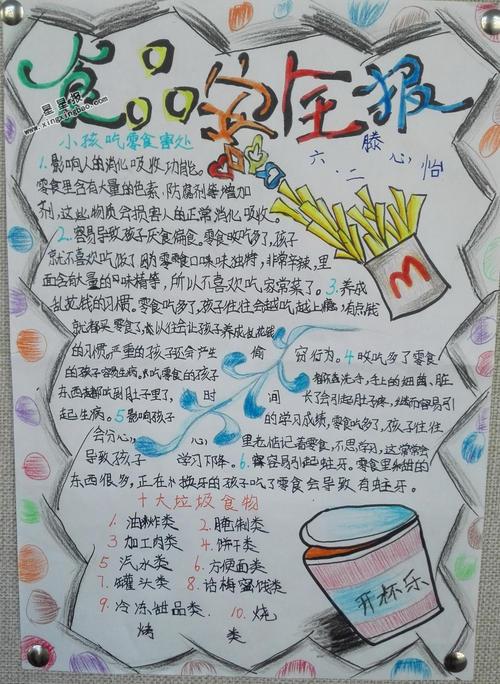 食品安全报
星星报
www.xingxingbao.com
小孩吃零食害处
滕心怡
六.二
1.影响人的消化吸收功能。
零食里含有大量的色素、防腐剂等增加
剂,这些物质会损害人的正常消化吸收。
2.容易导致孩子厌食偏食。零食吃多了,孩子
就不喜欢吃饭了
口味独特,非常辛辣,里
面含有大量的味精等,所以不喜欢吃家常菜了。3.养成
乱花钱的习惯。零食吃多了,孩子往往会越吃越上瘾,有点钱
就都买零食了,会让孩子养成乱花钱
的习惯,严重的孩子还会产生偷窃行为。4.吃多了零食
的孩子容易生病。吃零食的孩子时间
都没洗手,手上的细菌、脏
东西都吃到肚子里了,长了会引起肚子疼,继而容易引
起生病。5.影响孩子的学习成绩,零食吃多了,孩子往往
会分心,心里老惦记着零食,不思学习,这常常会
导致孩子学习下降。6.容易引起蛀牙。零食里和甜的
东西很多,正在换牙的孩子吃了零食会导致有蛀牙。
十大垃圾食物
1.油炸类 2.腌制类
3.加工肉类 4.饼干类
5.汽水类 6.方便面类
7.罐头类 8.话梅蜜饯类
9.冷冻甜品类 10.烧
烤类
M
开杯乐